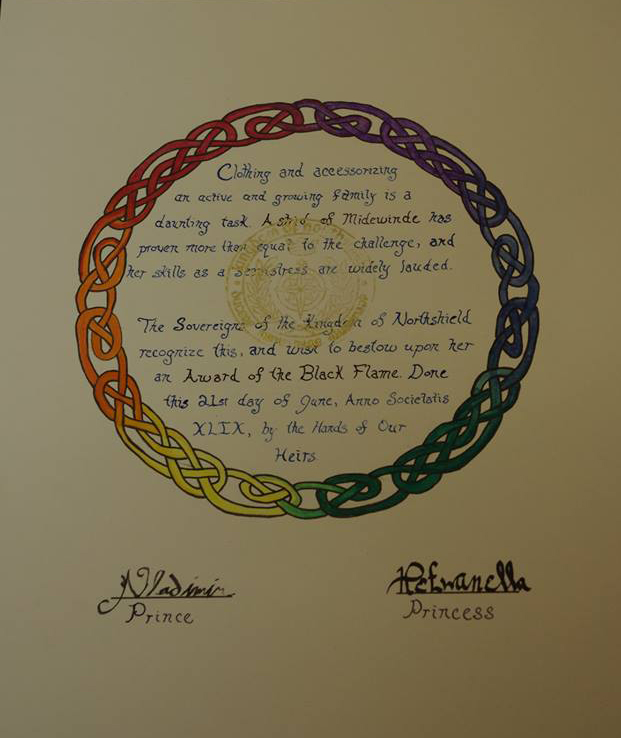 Clothing and accessorizing
an active and growing family is a
daunting task. Astrid of Midewinde has
proven more than equal to the challenge, and
her skills as a semistress are widely lauded.
The Sovereigns of the Kingdom of Northshield
recognize this, and wish to bestow upon her
an Award of the Black Flame. Done
this 21st day of June, Anno Societatis
XLIX, by the Hands of Our
Heirs.
Vladimir
Prince
Petranella
Princess